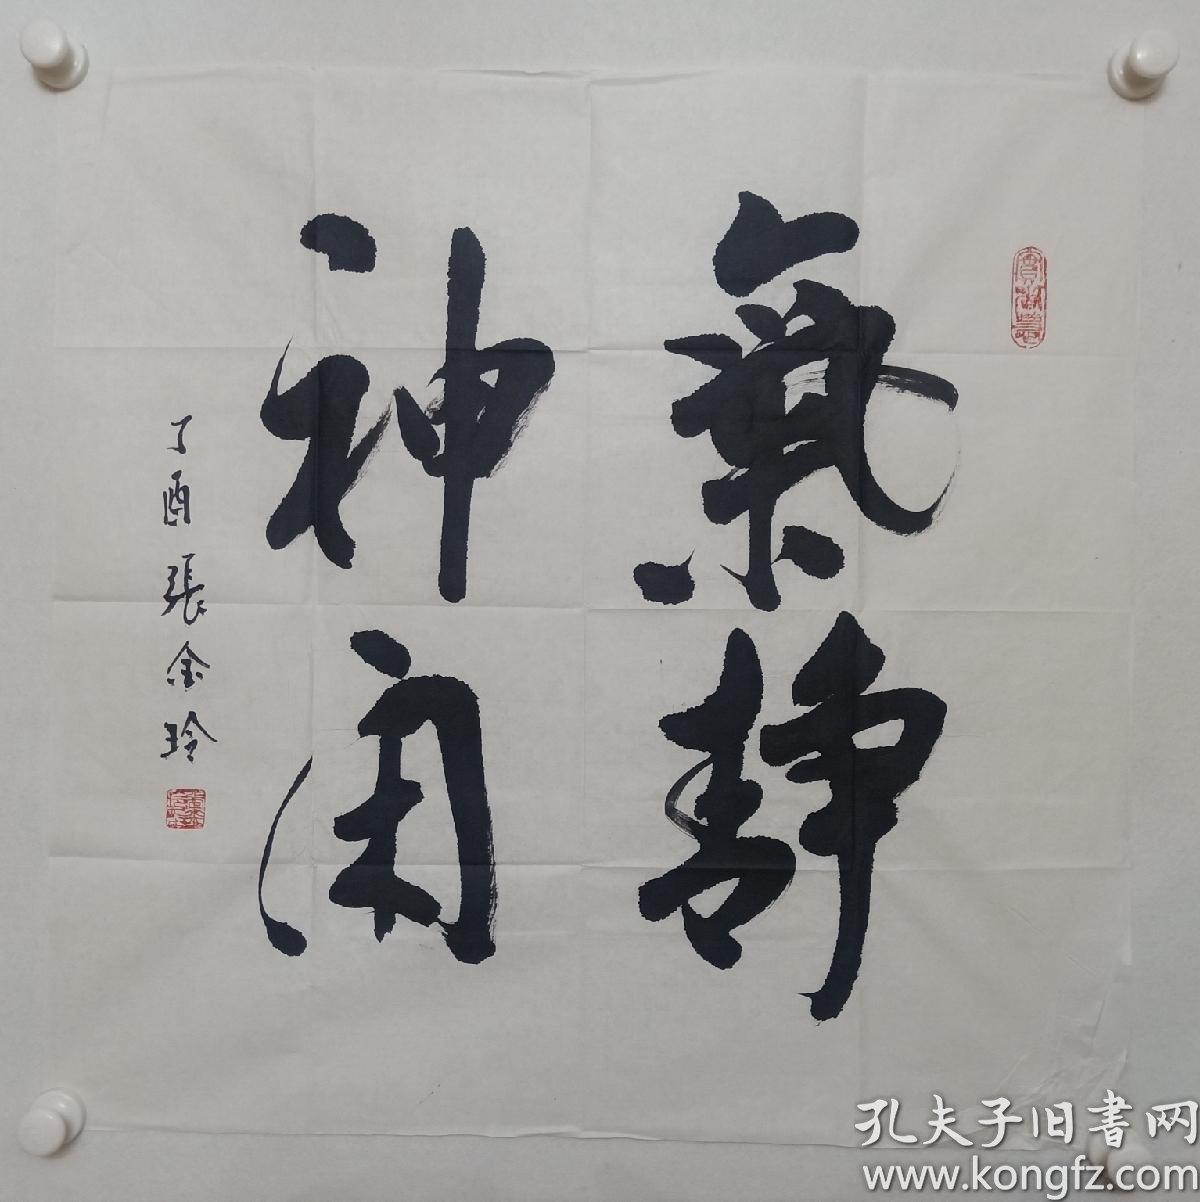 氣靜
神闲
丁酉張金玲
孔夫子旧書网
www.kongfz.com